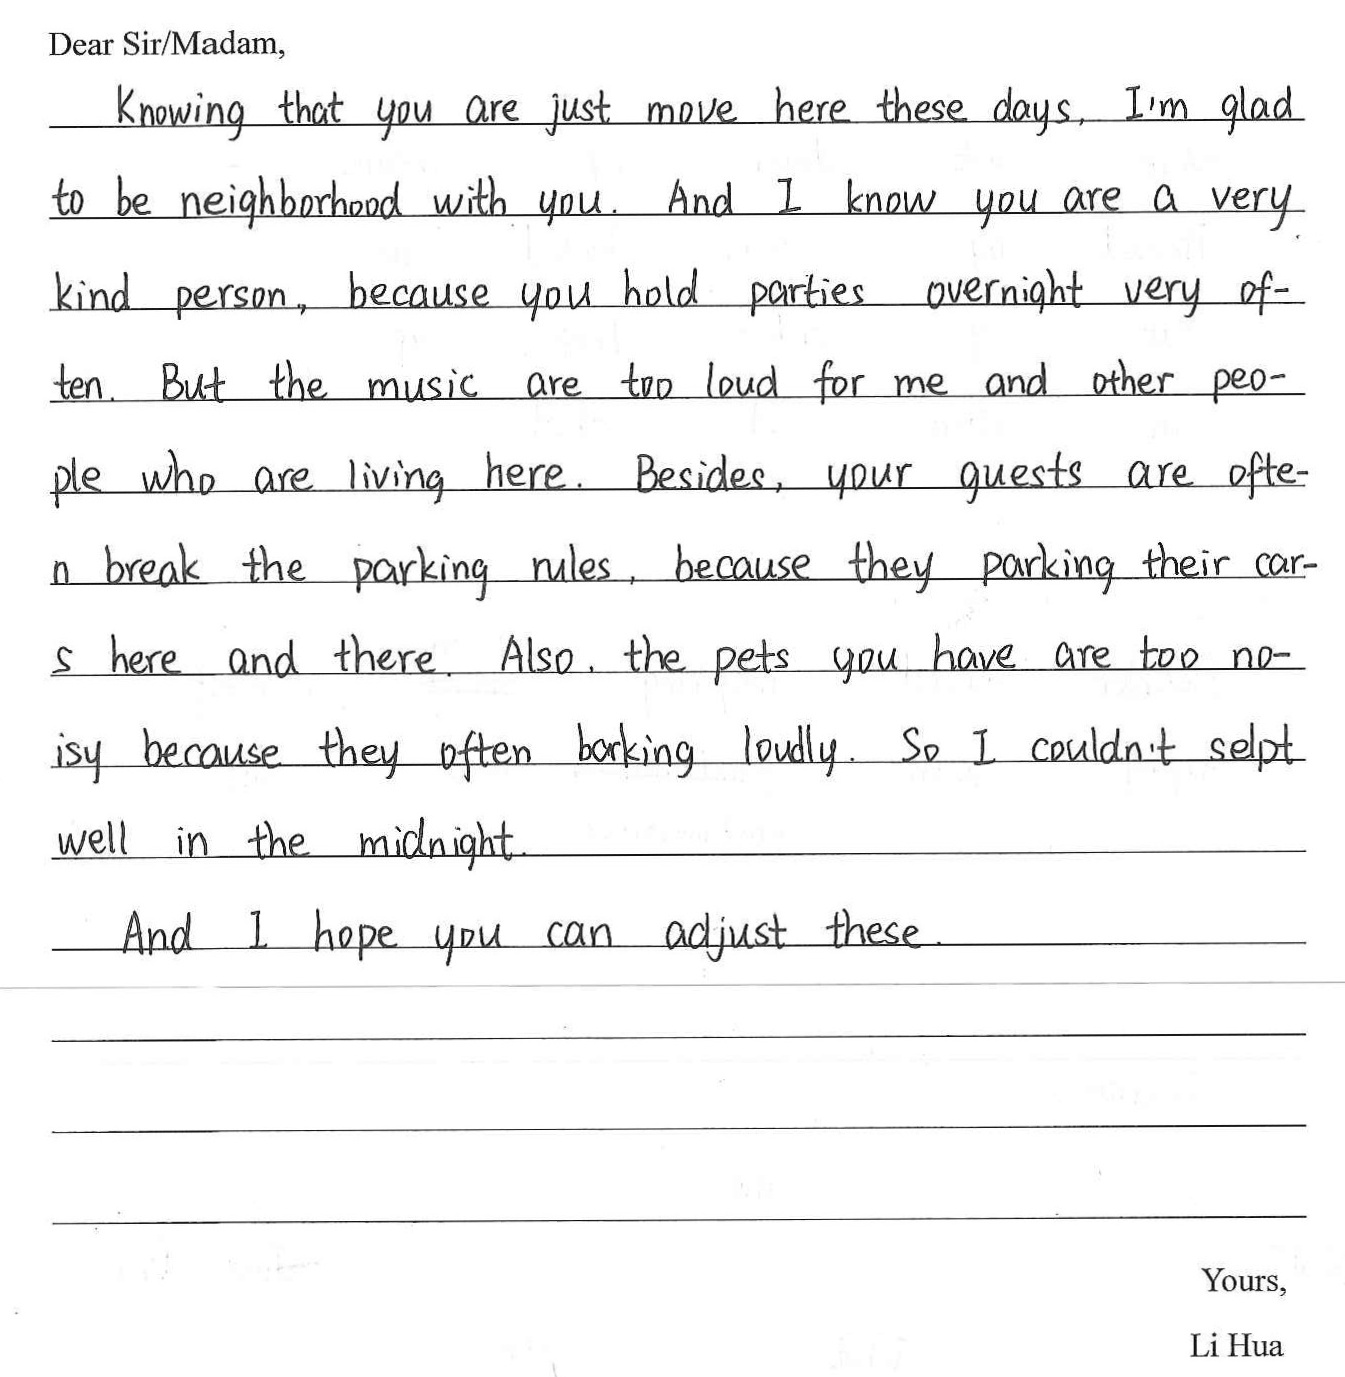 Dear Sir/Madam,
Knowing that you are just move here these days, I'm glad
to be neighborhood with you. And I know you are a very
kind person, because you hold parties overnight very of-
ten. But the music are too loud for me and other peo-
ple who are living here. Besides, your guests are ofte-
n break the parking rules, because they parking their car-
s here and there. Also, the pets you have are too no-
isy because they often barking loudly. So I couldn't selpt
well in the midnight.
And I hope you can adjust these.
Yours,
Li Hua